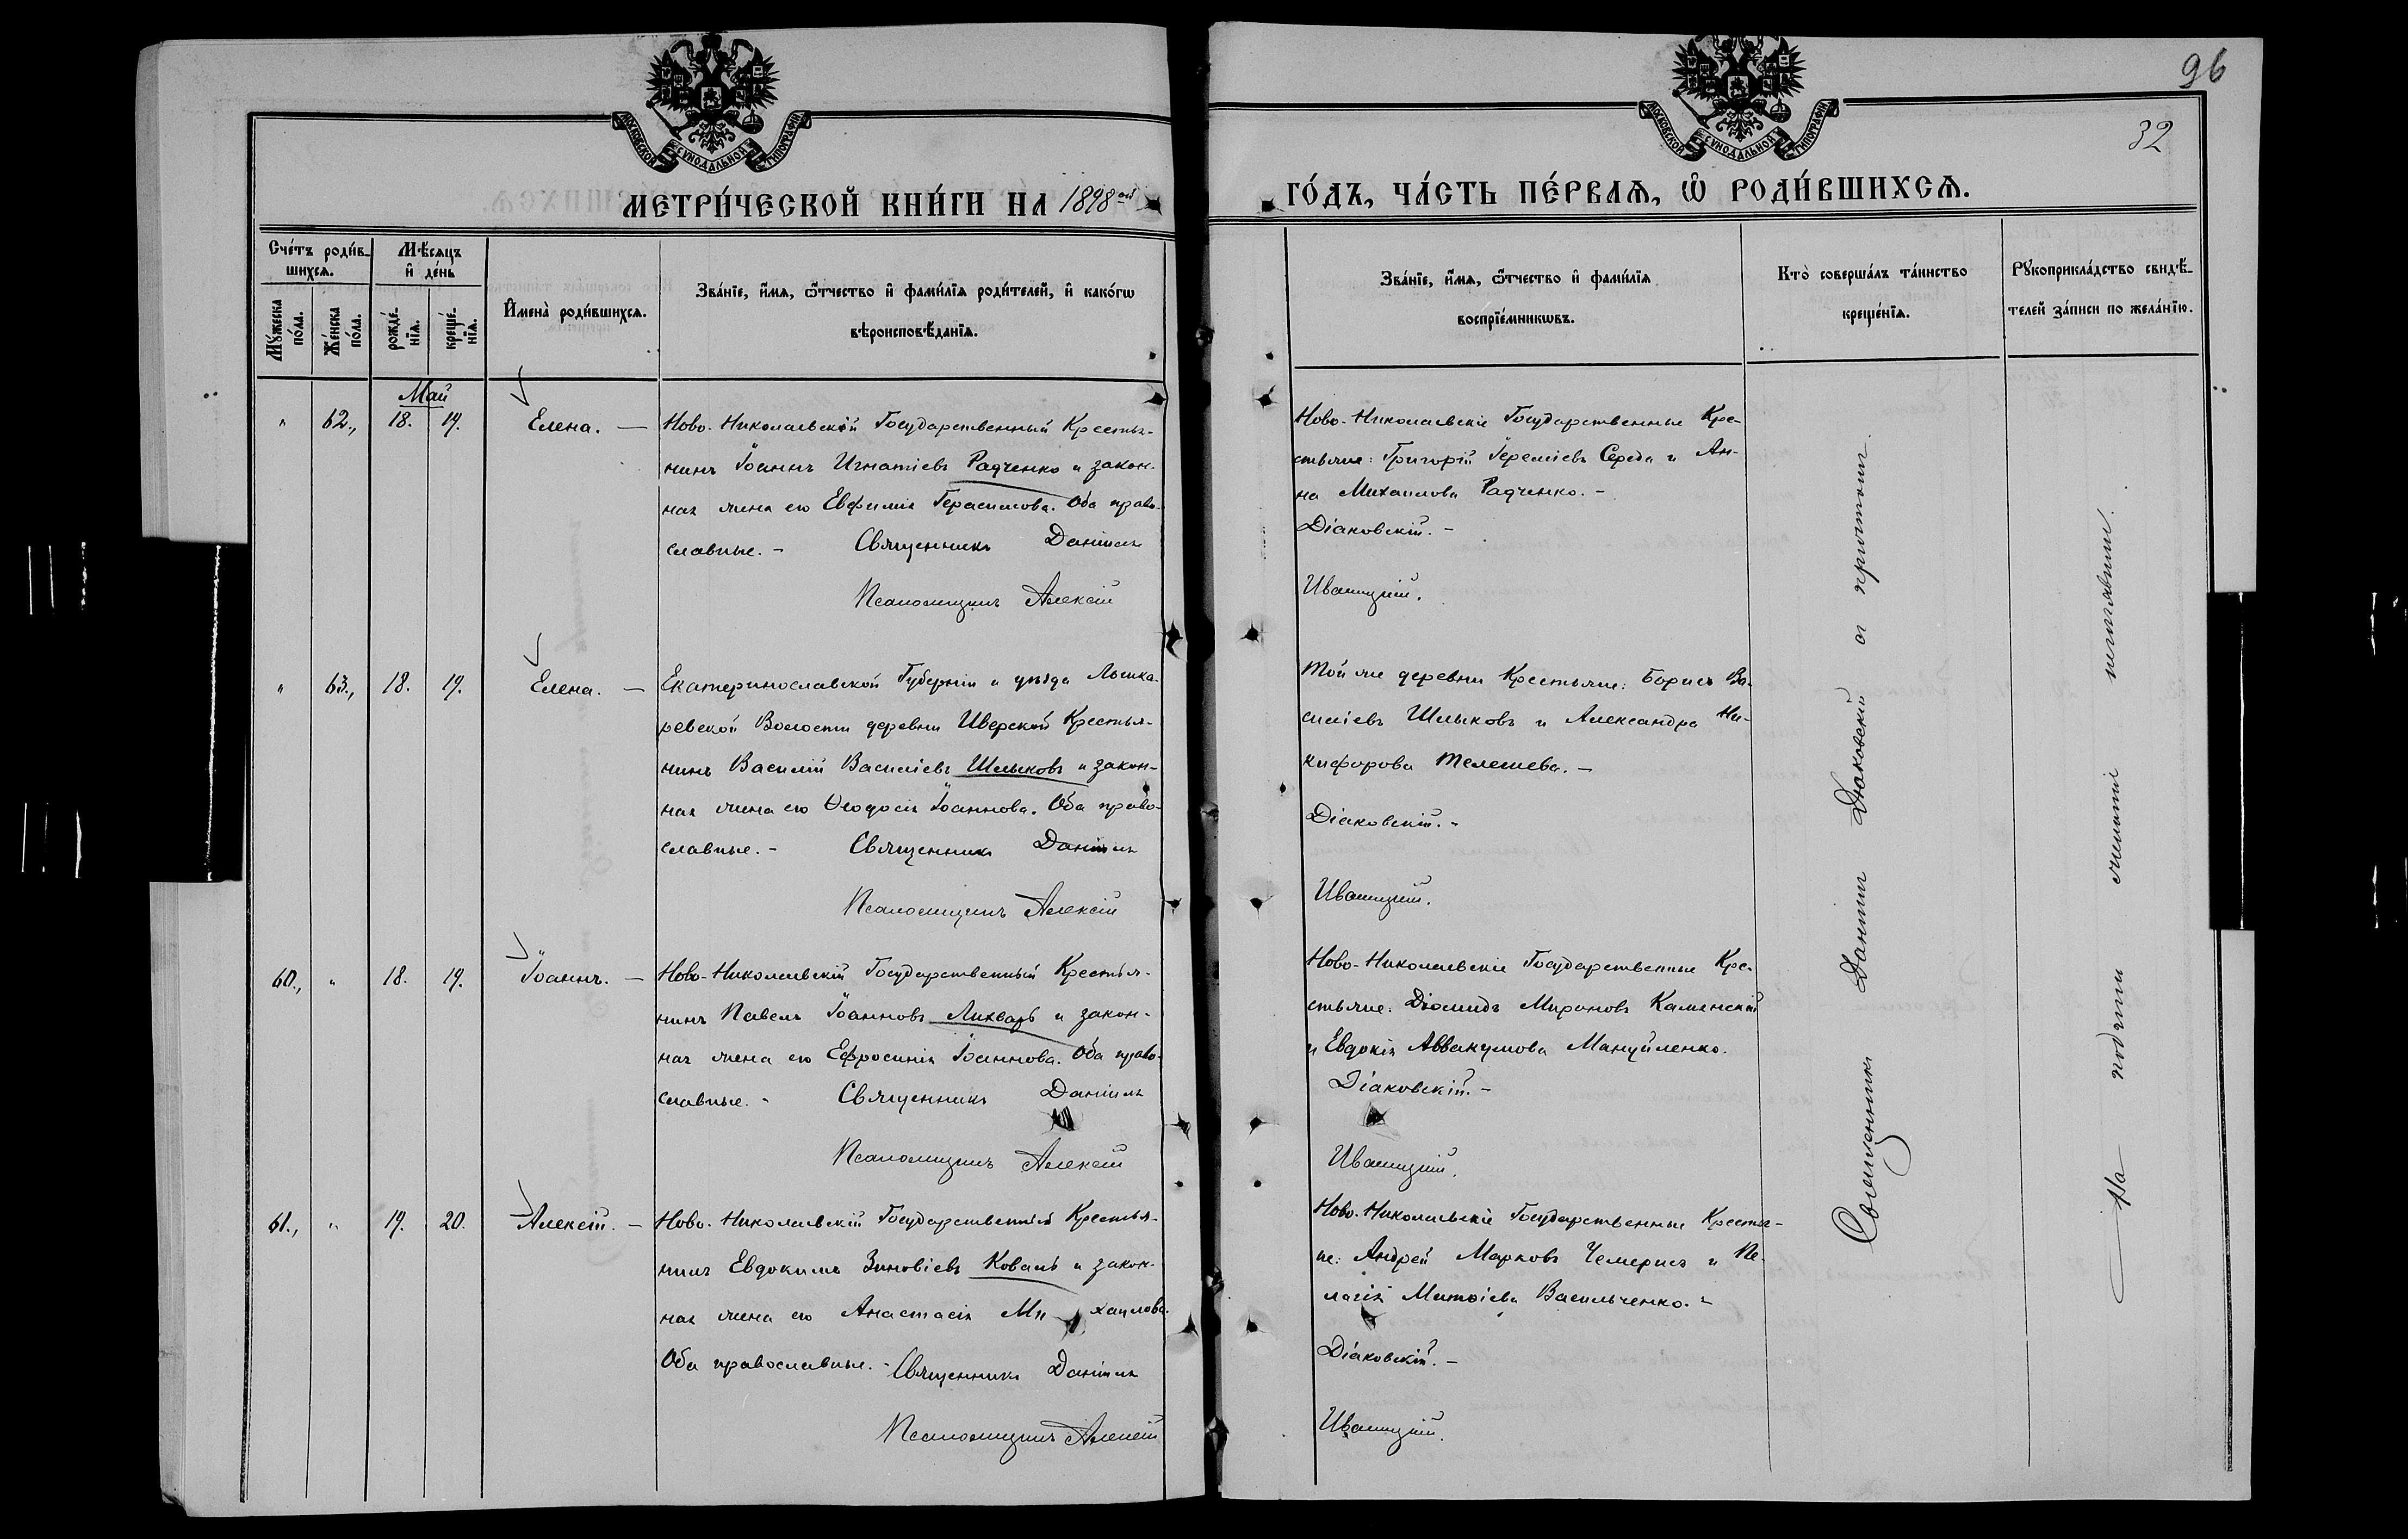 96
32
МОСКОВСКОЙ СѴНОДАЛЬНОЙ ТИПОГРАФІИ
МОСКОВСКОЙ СѴНОДАЛЬНОЙ ТИПОГРАФІИ
МЕТРИ́ЧЕСКОЙ КНИ́ГИ НА 1898ой
ГО́ДЪ, ЧА́СТЬ ПЕ́РВАѦ, Ѽ РОДИ́ВШИХСѦ.
Сче́тъ роди́в-
шихсѧ.
Мꙋ́жеска по́ла.
Же́нска по́ла.
Мѣ́сѧцъ
и҆ де́нь
рожде́-нїѧ.
креще́-нїѧ.
И҆мена̀ роди́вшихсѧ.
Зва́нїе, и҆́мѧ, ѻ҆́тчество и҆ фами́лїѧ роди́телей, и҆ како́гѡ
вѣроисповѣ́данїѧ.
Зва́нїе, и҆́мѧ, ѻ҆́тчество и҆ фами́лїѧ
воспрїе́мникѡвъ.
Кто̀ соверша́лъ та́инство
креще́нїѧ.
Рꙋкоприкла́дство свидѣ́-
телей за́писи по жела́нїю.
Май
" 62., 18. 19. Елена. —
Ново-Николаевскій Государственный Крестья-
нинъ Іоаннъ Игнатіевъ Радченко и закон-
ная жена его Евфимія Герасимова. Оба право-
славные. – Священникъ Даніилъ
Псаломщикъ Алексій
Ново-Николаевскіе Государственные Кре-
стьяне: Григорій Іереміевъ Середа и Ан-
на Михаилова Радченко. –
Діаковскій. –
Ивашкицій.
" 63., 18. 19. Елена. —
Екатеринославской Губерніи и уѣзда Лошка-
ревской Волости деревни Иверской Крестья-
нинъ Василій Василіевъ Шлыковъ и закон-
ная жена его Ѳеодосія Іоаннова. Оба право-
славные. – Священникъ Даніилъ
Псаломщикъ Алексій
Той же деревни Крестьяне: Борисъ Ва-
силіевъ Шлыковъ и Александра Ни-
кифорова Телешева. –
Діаковскій. –
60., " 18. 19. Іоаннъ. —
Ново-Николаевскій Государственный Крестья-
нинъ Павелъ Іоанновъ Лихварь и закон-
ная жена его Ефросинія Іоаннова. Оба право-
славные. – Священникъ Даніилъ
Псаломщикъ Алексій
Ново-Николаевскіе Государственные Кре-
стьяне: Діомидъ Мироновъ Каминскій
и Евдокія Аввакумова Мануйленко.
Діаковскій. –
61., " 19. 20. Алексій. —
Ново-Николаевскій Государственный Крестья-
нинъ Евдокимъ Зиновіевъ Коваль и закон-
ная жена его Анастасія Михаилова.
Оба православные. – Священникъ Даніилъ
Псаломщикъ Алексій
Ново-Николаевскіе Государственные Крестья-
не: Андрей Марковъ Чемерисъ и Пе-
лагія Матѳіева Васильченко. –
Діаковскій. –
Священникъ Даніилъ Діаковскій съ причтомъ.
На подлинн